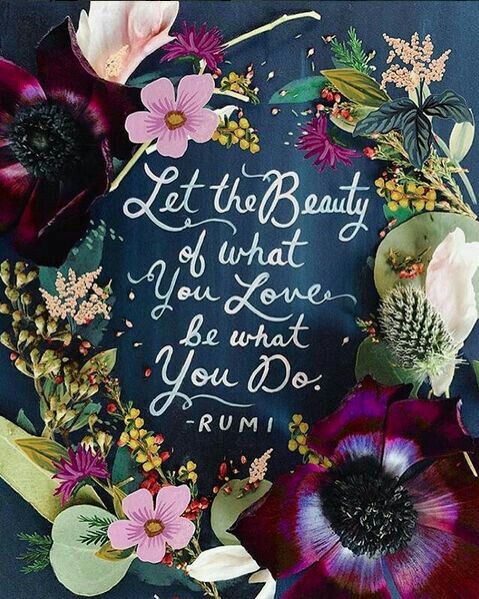 Let the Beauty
of what
You Love
be what
You Do.
-RUMI